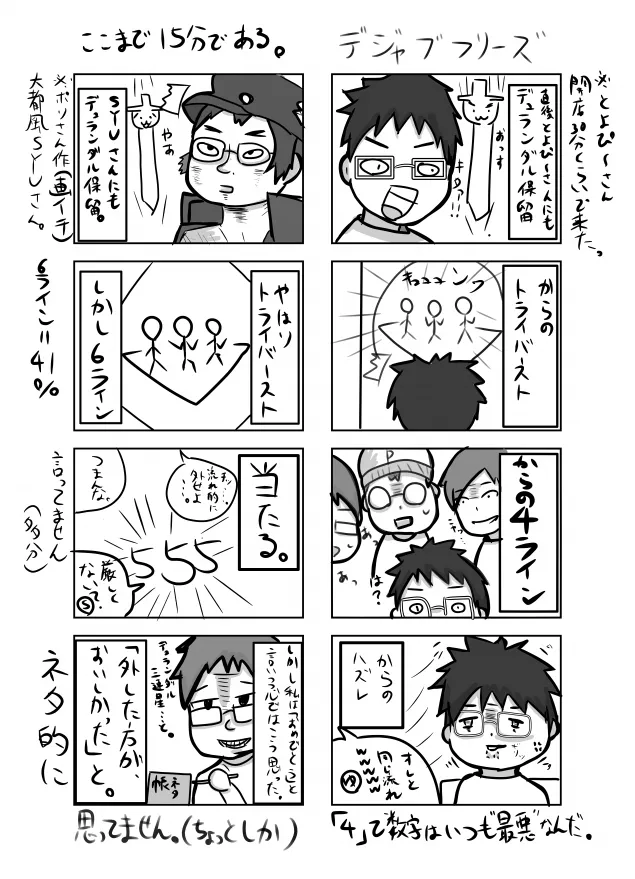 デジャブフリーズ
※とよぴ〜さん
開店30分くらいで来た。
直後とよぴ〜さんにも
デュランダル保留
おっす
キタ?!!
からの
トライバースト
キュュュンフ
からの4ライン
あっ
は?
からの
ハズレ
オレと
同じ流れ
wwwww
「4」て数字はいつも最悪なんだ。
ここまで15分である。
※ポリさん作(重イチ)
大都風SYUさん。
SYUさんにも
デュランダル保留。
やぁ
やはり
トライバースト
しかし6ライン
6ライン=41%
当たる。
流れ的に
外せよ
・・・。
つまんな。
555
厳しく
ない?
言ってません
(多分)
しかし私は「おめでとう」と
言いつつ心ではこう思った。
デュランダル
三連星…と。
「外した方が、
おいしかった」と。
ネタ帳
ネタ的に
思ってません。(ちょっとしか)